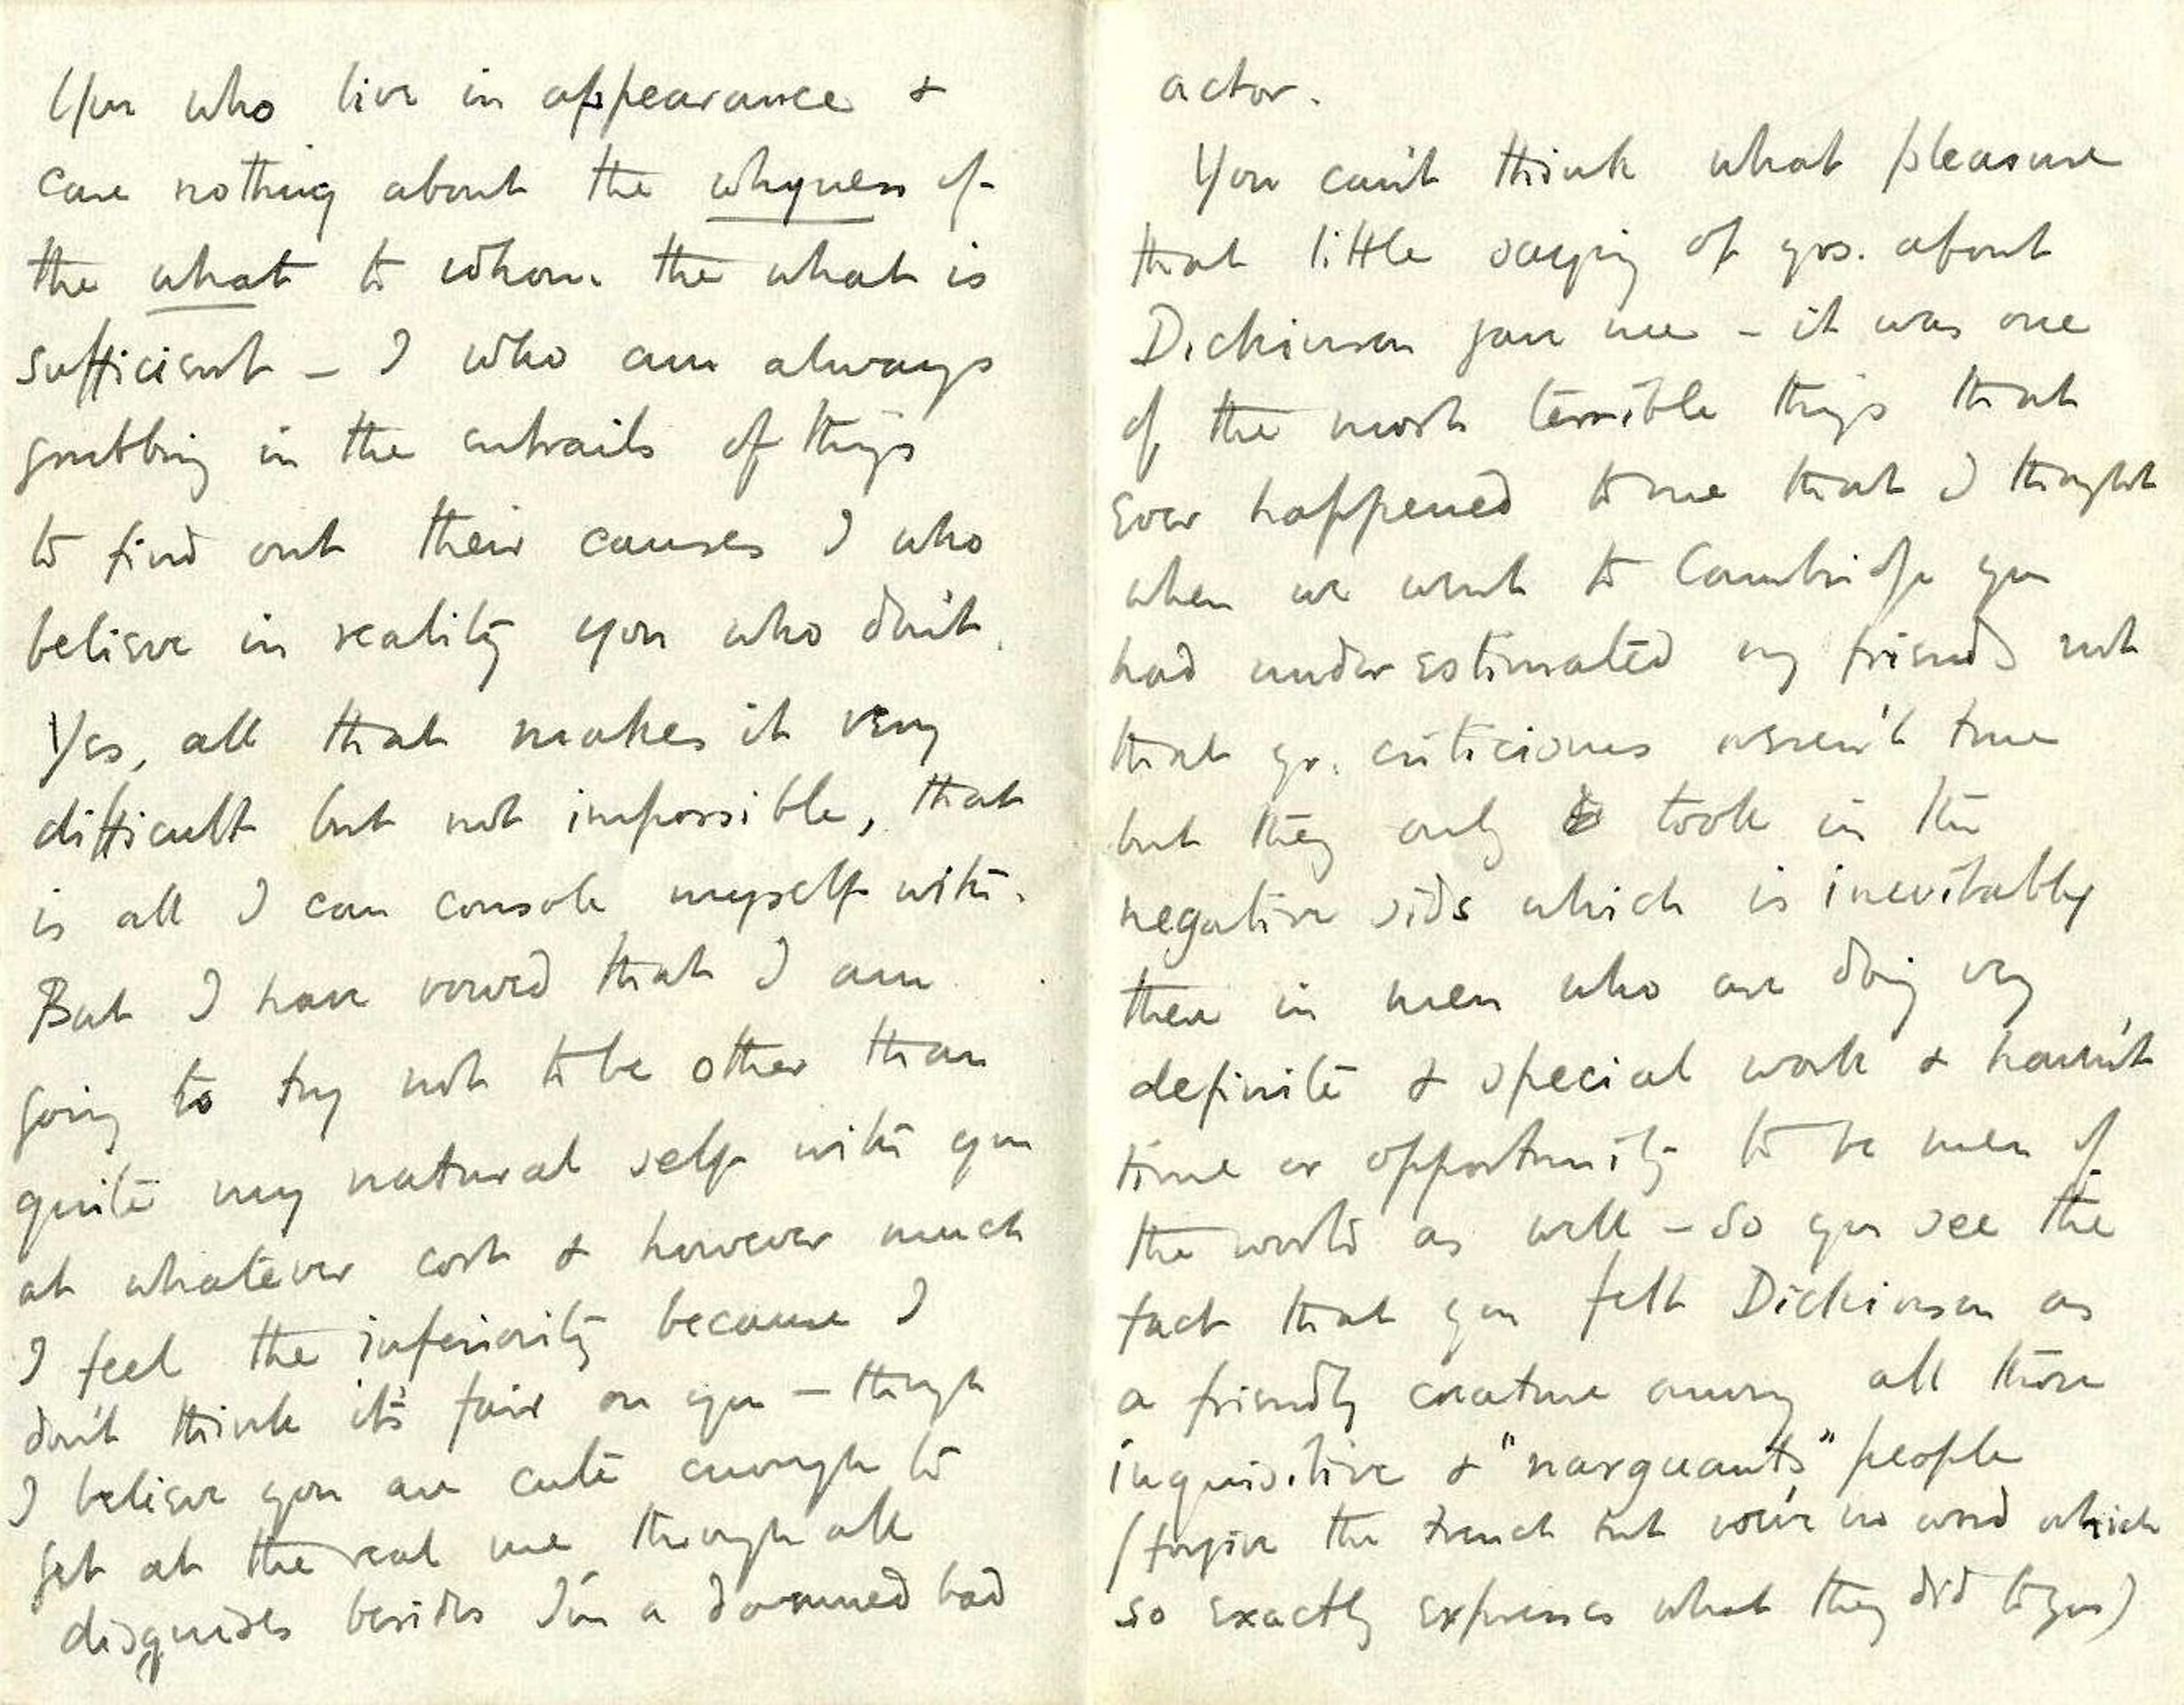 You who live in appearance &
care nothing about the whyness of
the what to whom the what is
sufficient – I who am always
grubbing in the entrails of things
to find out their causes I who
believe in reality you who don't.
Yes, all that makes it very
difficult but not impossible, that
is all I can console myself with.
But I have vowed that I am
going to try not to be other than
quite my natural self with you
at whatever cost & however much
I feel the inferiority because I
don't think it's fair on you – though
I believe you are cute enough to
get at the real me through all
disguises besides I'm a damned bad
actor.
You can't think what pleasure
that little saying of yrs. about
Dickinson gave me – it was one
of the most terrible things that
ever happened to me that I thought
when we went to Cambridge you
had underestimated my friends not
that yr. criticisms weren't true
but they only took in the
negative side which is inevitably
there in men who are doing very
definite & special work & haven't
time or opportunity to be men of
the world as well – So you see the
fact that you felt Dickinson as
a friendly creature among all those
inquisitive & "narquants" people
(forgive the french but we've no word which
so exactly expresses what they did to you)